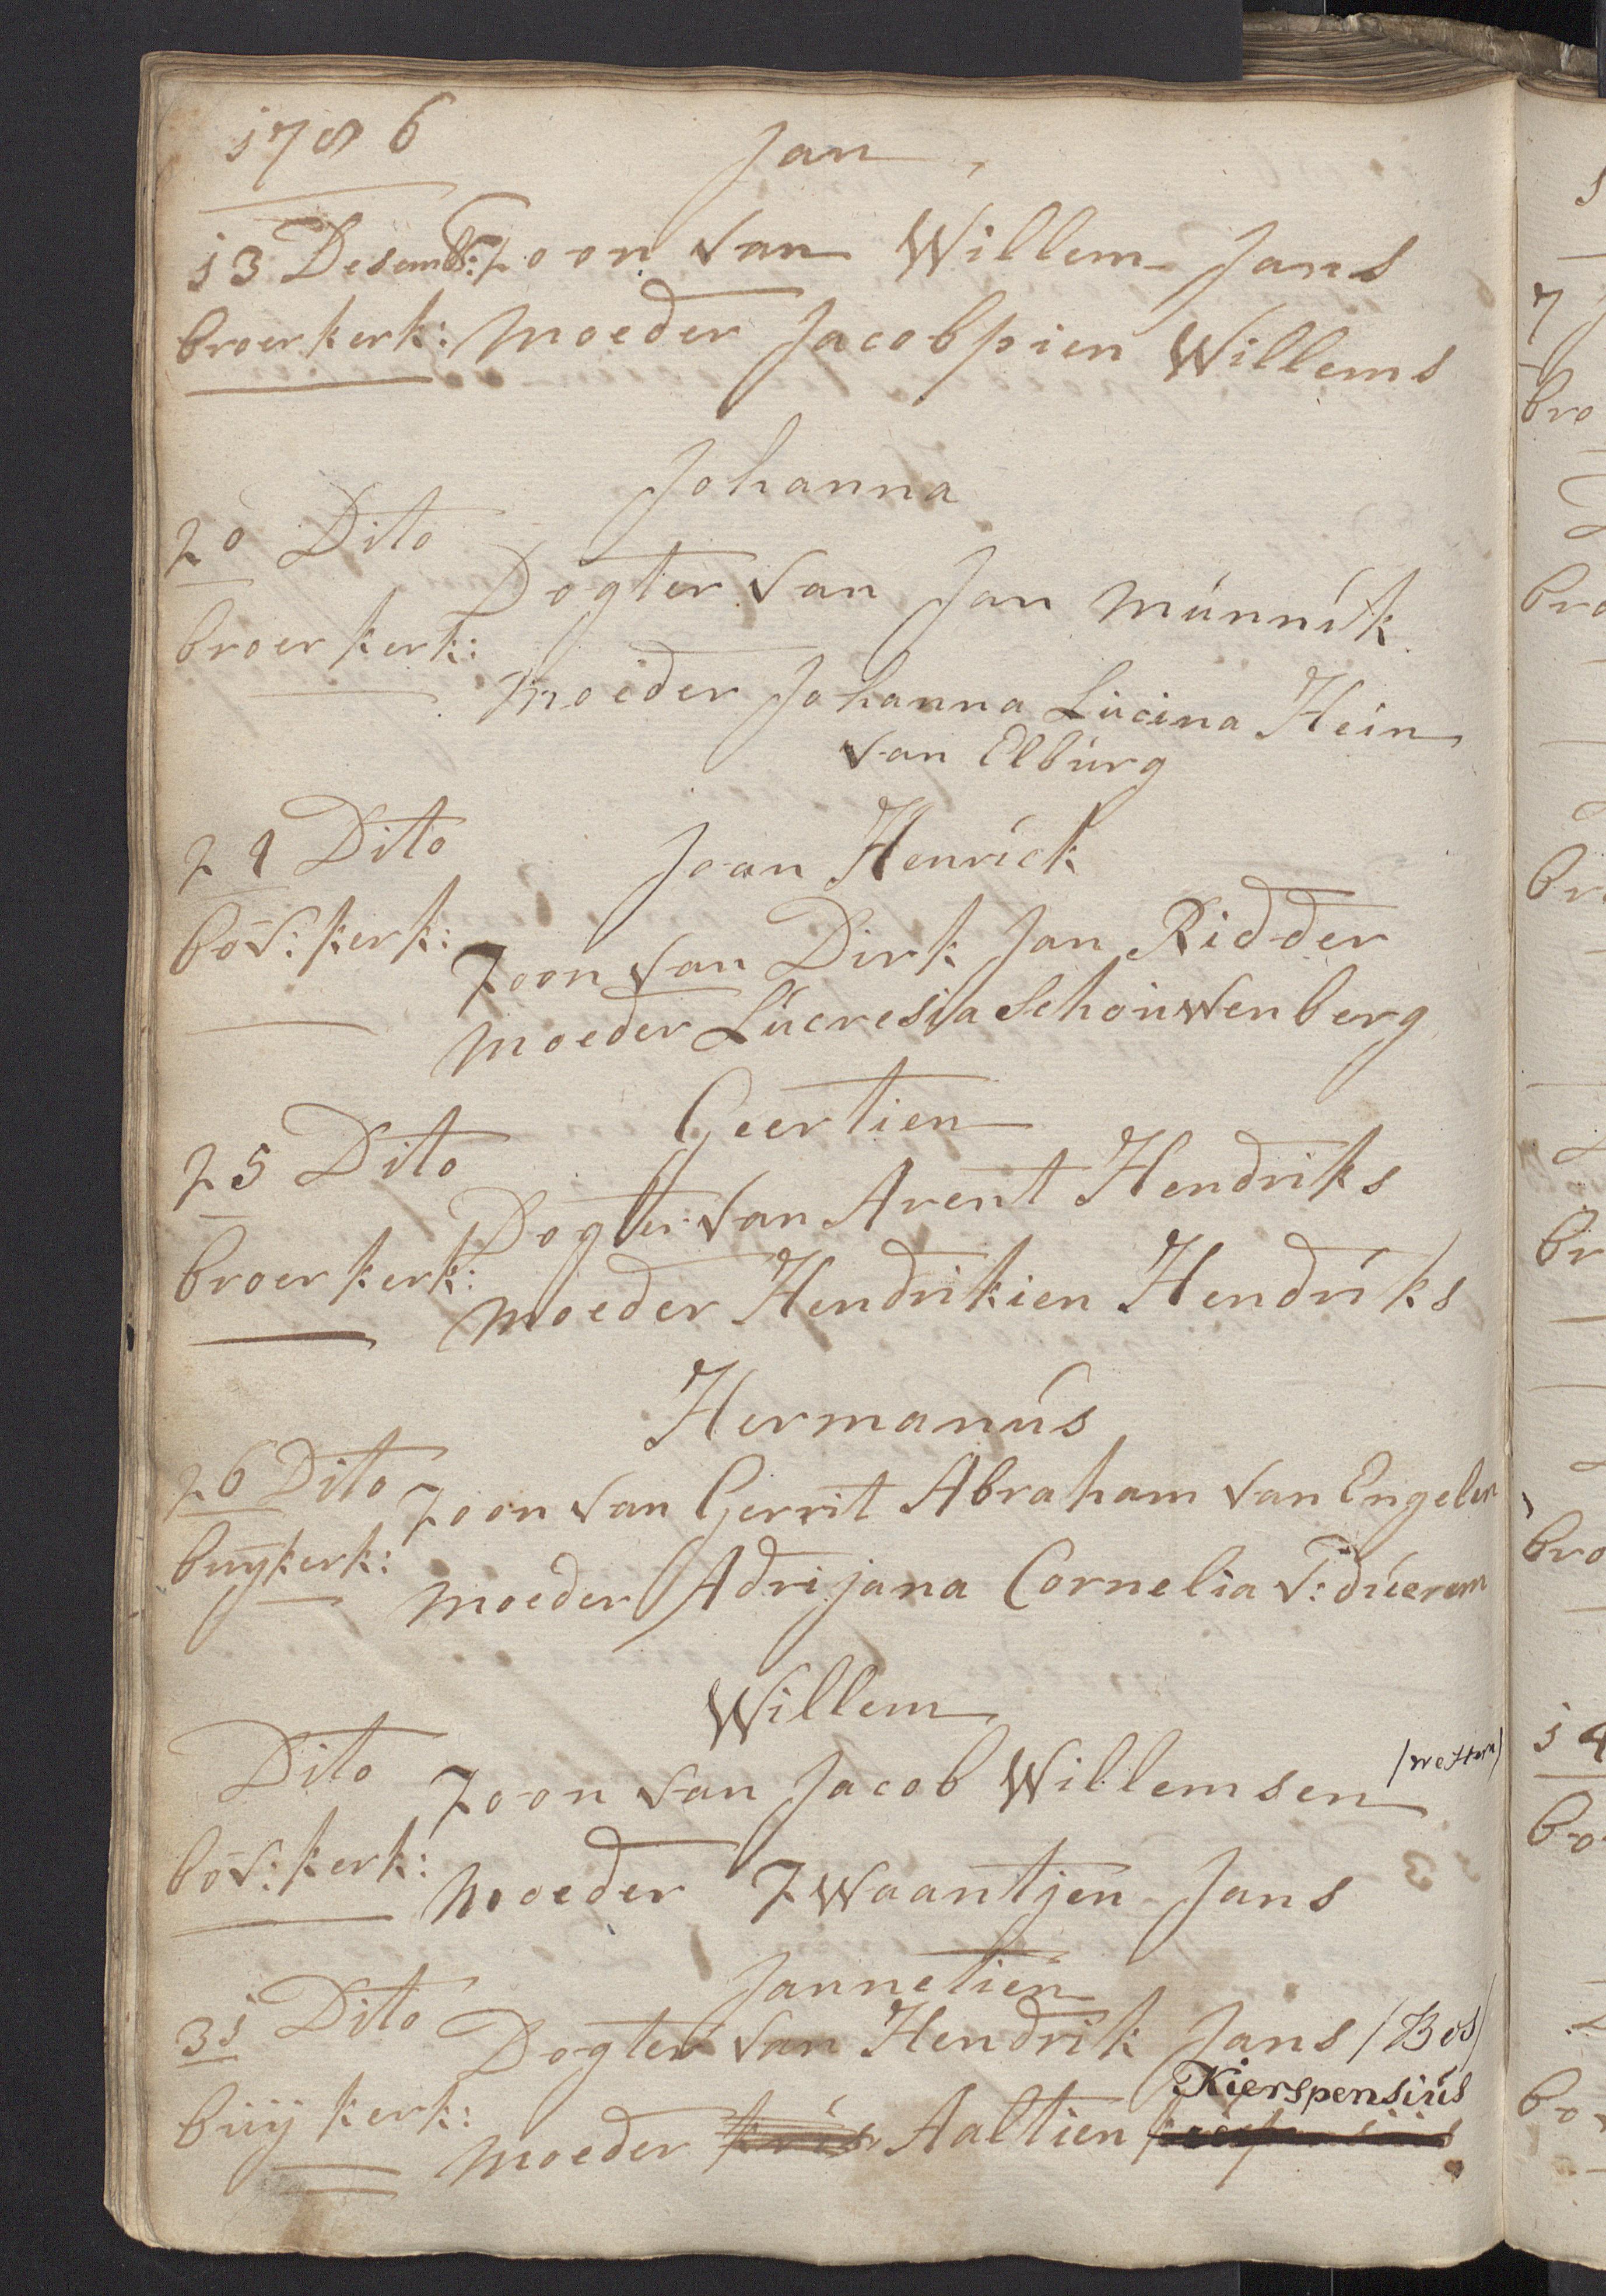 1786
Jan
13 Desemb: Zoon van Willem Jans
broerkerk: Moeder Jacobpien Willems
Johanna
20 Dito
Dogter van Jan Münnik
broerkerk:
Moeder Johanna Lucina Hein
van Elburg
21 Dito
Joan Henrick
bov: kerk:
Zoon van Dirk Jan Ridder
Moeder Lúcresia Schouwenberg
Geertien
25 Dito
Dogter van Arent Hendriks
broerkerk:
Moeder Hendrikien Hendriks
Hermanús
26 Dito Zoon van Gerrit Abraham van Engelen
buykerk:
Moeder Adrijana Cornelia v: dúeren
Willem
Dito Zoon van Jacob Willemsen
bov: kerk:
Moeder Zwaantjen Jans
Jannetien
31 Dito Dogter van Hendrik Jans /Bos/
Kierspensiús
buij kerk:
Moeder Aaltien